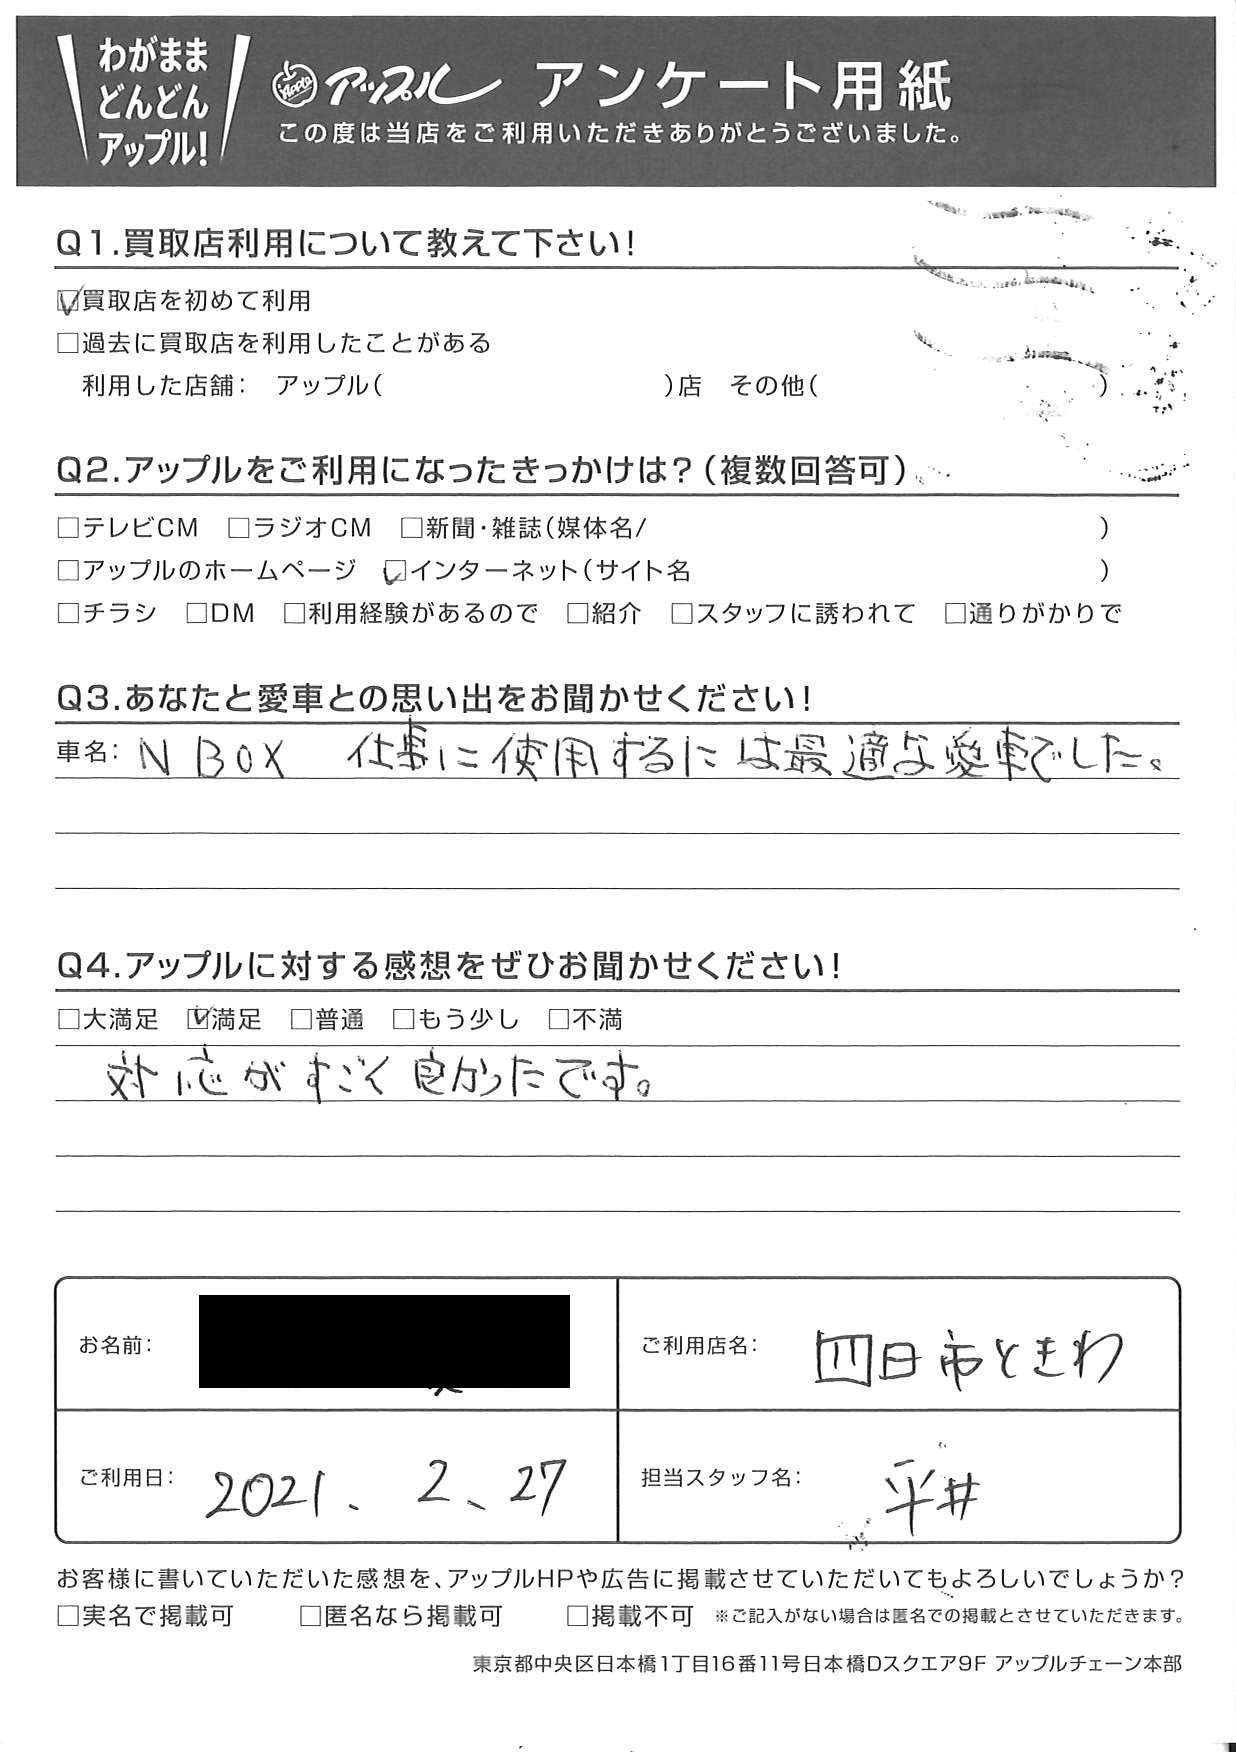 わがまま
どんどん
アップル!
Apple アップル アンケート用紙
この度は当店をご利用いただきありがとうございました。
Q1.買取店利用について教えて下さい!
☑買取店を初めて利用
□過去に買取店を利用したことがある
利用した店舗: アップル( )店 その他( )
Q2.アップルをご利用になったきっかけは?(複数回答可)
□テレビCM □ラジオCM □新聞・雑誌(媒体名/ )
□アップルのホームページ ☑インターネット(サイト名 )
□チラシ □DM □利用経験があるので □紹介 □スタッフに誘われて □通りがかりで
Q3.あなたと愛車との思い出をお聞かせください!
車名: N BOX 仕事に使用するには最適な愛車でした。
Q4.アップルに対する感想をぜひお聞かせください!
□大満足 ☑満足 □普通 □もう少し □不満
対応がすごく良かったです。
お名前:
ご利用店名: 四日市ときわ
ご利用日: 2021、2、27
担当スタッフ名: 平井
お客様に書いていただいた感想を、アップルHPや広告に掲載させていただいてもよろしいでしょうか?
□実名で掲載可 □匿名なら掲載可 □掲載不可 ※ご記入がない場合は匿名での掲載とさせていただきます。
東京都中央区日本橋1丁目16番11号日本橋Dスクエア9F アップルチェーン本部